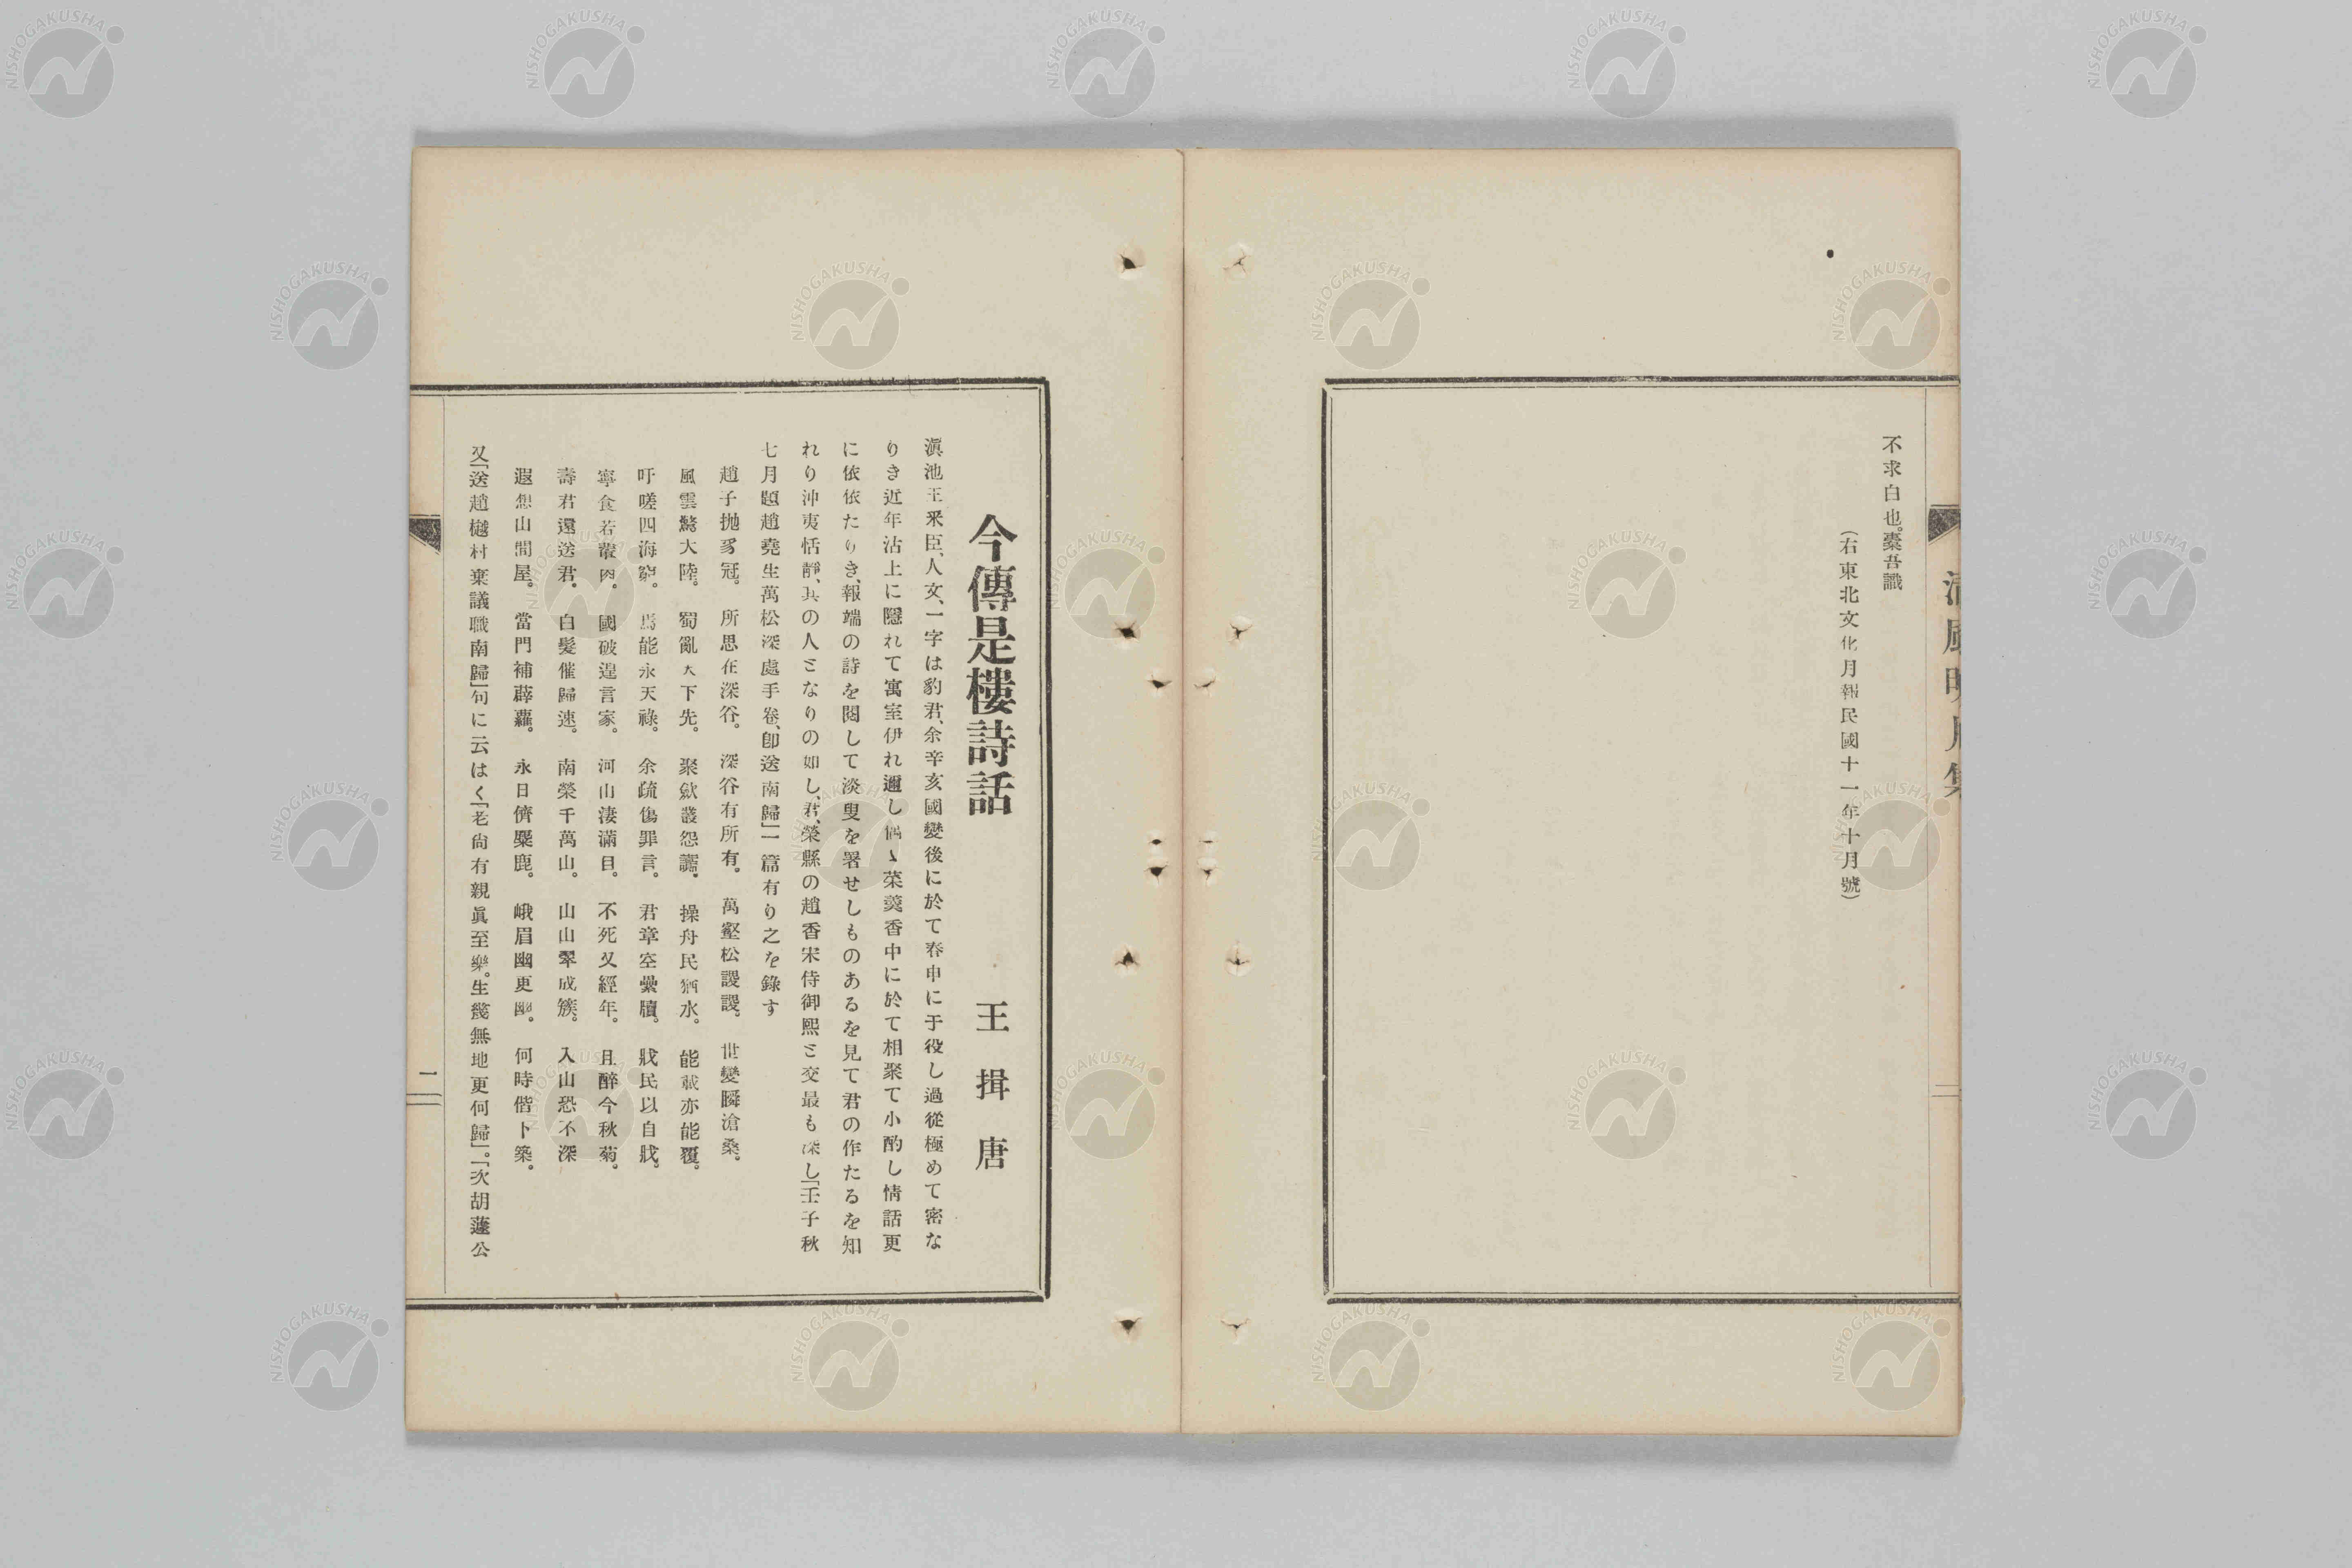 不求白也。橐吾識
(右東北文化月報民國十一年十月號)
今傳是樓詩話
王揖唐
滇池王釆臣、人文、一字は豹君、余辛亥國變後に於て春申に于役し過從極めて密な
りき近年沽上に隱れて寓室伊れ邇し偶〻菜羹香中に於て相聚て小酌し情話更
に依依たりき、報端の詩を閱して淡叟を署せしものあるを見て君の作たるを知
れり沖夷恬靜、其の人となりの如し、君、榮縣の趙香宋侍御熙と交最も深し「壬子秋
七月題趙堯生萬松深處手卷、卽送南歸」一篇有り之を錄す
趙子抛豸冠。所思在深谷。深谷有所有。萬壑松謖謖。世變瞬滄桑。
風雲驚大陸。蜀亂天下先。聚斂叢怨讟。操舟民猶水。能載亦能覆。
吁嗟四海窮。焉能永天祿。余疏傷罪言。君章空纍牘。戕民以自戕。
寧食若輩肉。國破遑言家。河山淒滿目。不死又經年。且醉今秋菊。
壽君還送君。白髮催歸速。南榮千萬山。山山翠成簇。入山恐不深
遐想山間屋。當門補薜蘿。永日儕麋鹿。峨眉幽更幽。何時偕卜築。
又「送趙樾村棄議職南歸」句に云はく「老尙有親眞至樂。生幾無地更何歸」。「次胡蘧公
一
清風明月集